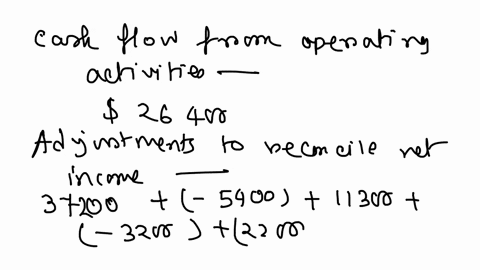 cash flow from operating
activities —
$ 26400
Adjustments to reconcile net
income —
37200 + (- 5900) + 11300 +
(- 3200) + (2200